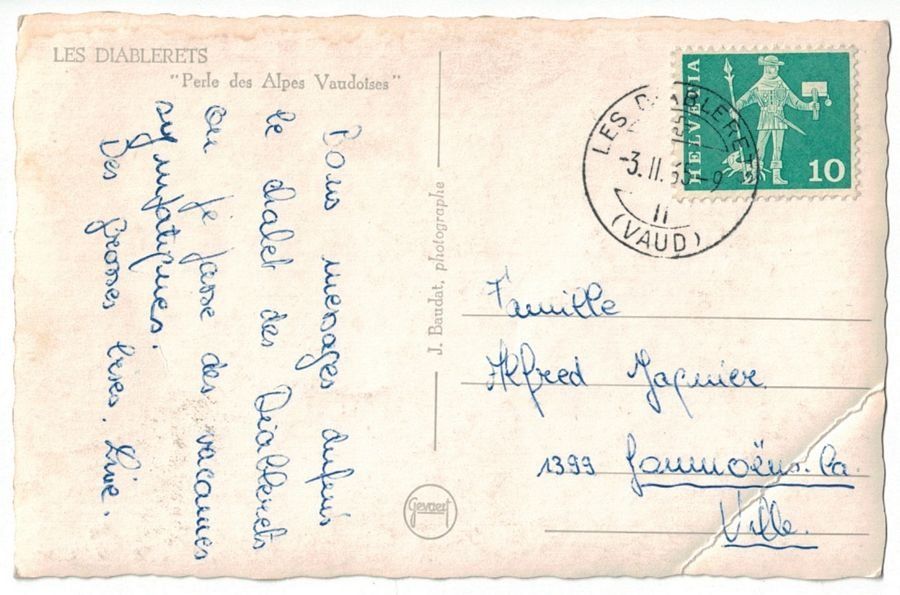 LES DIABLERETS
"Perle des Alpes Vaudoises"
Bons messages depuis
le chalet des Diablerets
où je passe des vacances
sympatiques.
Des grosses bises. Live.
J. Baudat, photographe
Gevaert
HELVETIA
10
LES DIABLERETS
-3.II. -9
11
(VAUD)
Famille
Alfred Jaquier
1399 Goumoëns-la-
Ville.